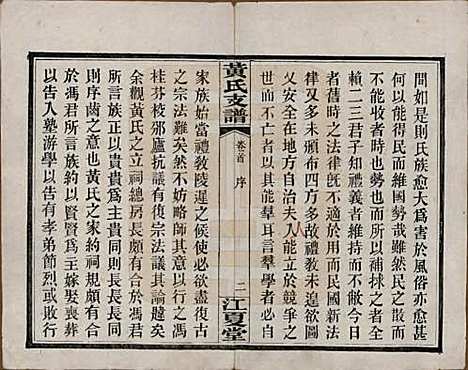 間如是則氏族愈大為害於風俗亦愈甚
何以能得民而維國勢哉雖然民之散而不
能收者時也勢也而所以補捄之者人也所
賴二三君子知禮義者維持而不壞焉耳或
者舊時之法律旣不適於用而民國新定之
律又多未頒布四万多故禮教未遑欲圖長
又安全在地方自治夫人能立於競爭之世
而不亡者以其能羣耳言羣學者曰
黃氏支譜
卷首 序
二
江夏堂
家族始當禮敎陵遲之後不必欲盡復古
之宗法難矣然不妨略師其意以行之馮
桂芬校邠廬抗議有復宗法議其論韙矣
余觀黃氏之立祠總房長頗有合於馮君
所言族正以貴貴為主貴同則長長長同
則序齒之意也黃氏之家約祠規頗有合
於馮君所言族約以賢賢為主嫁娶喪葬
以告入塾游學以告有孝弟節烈或敗行